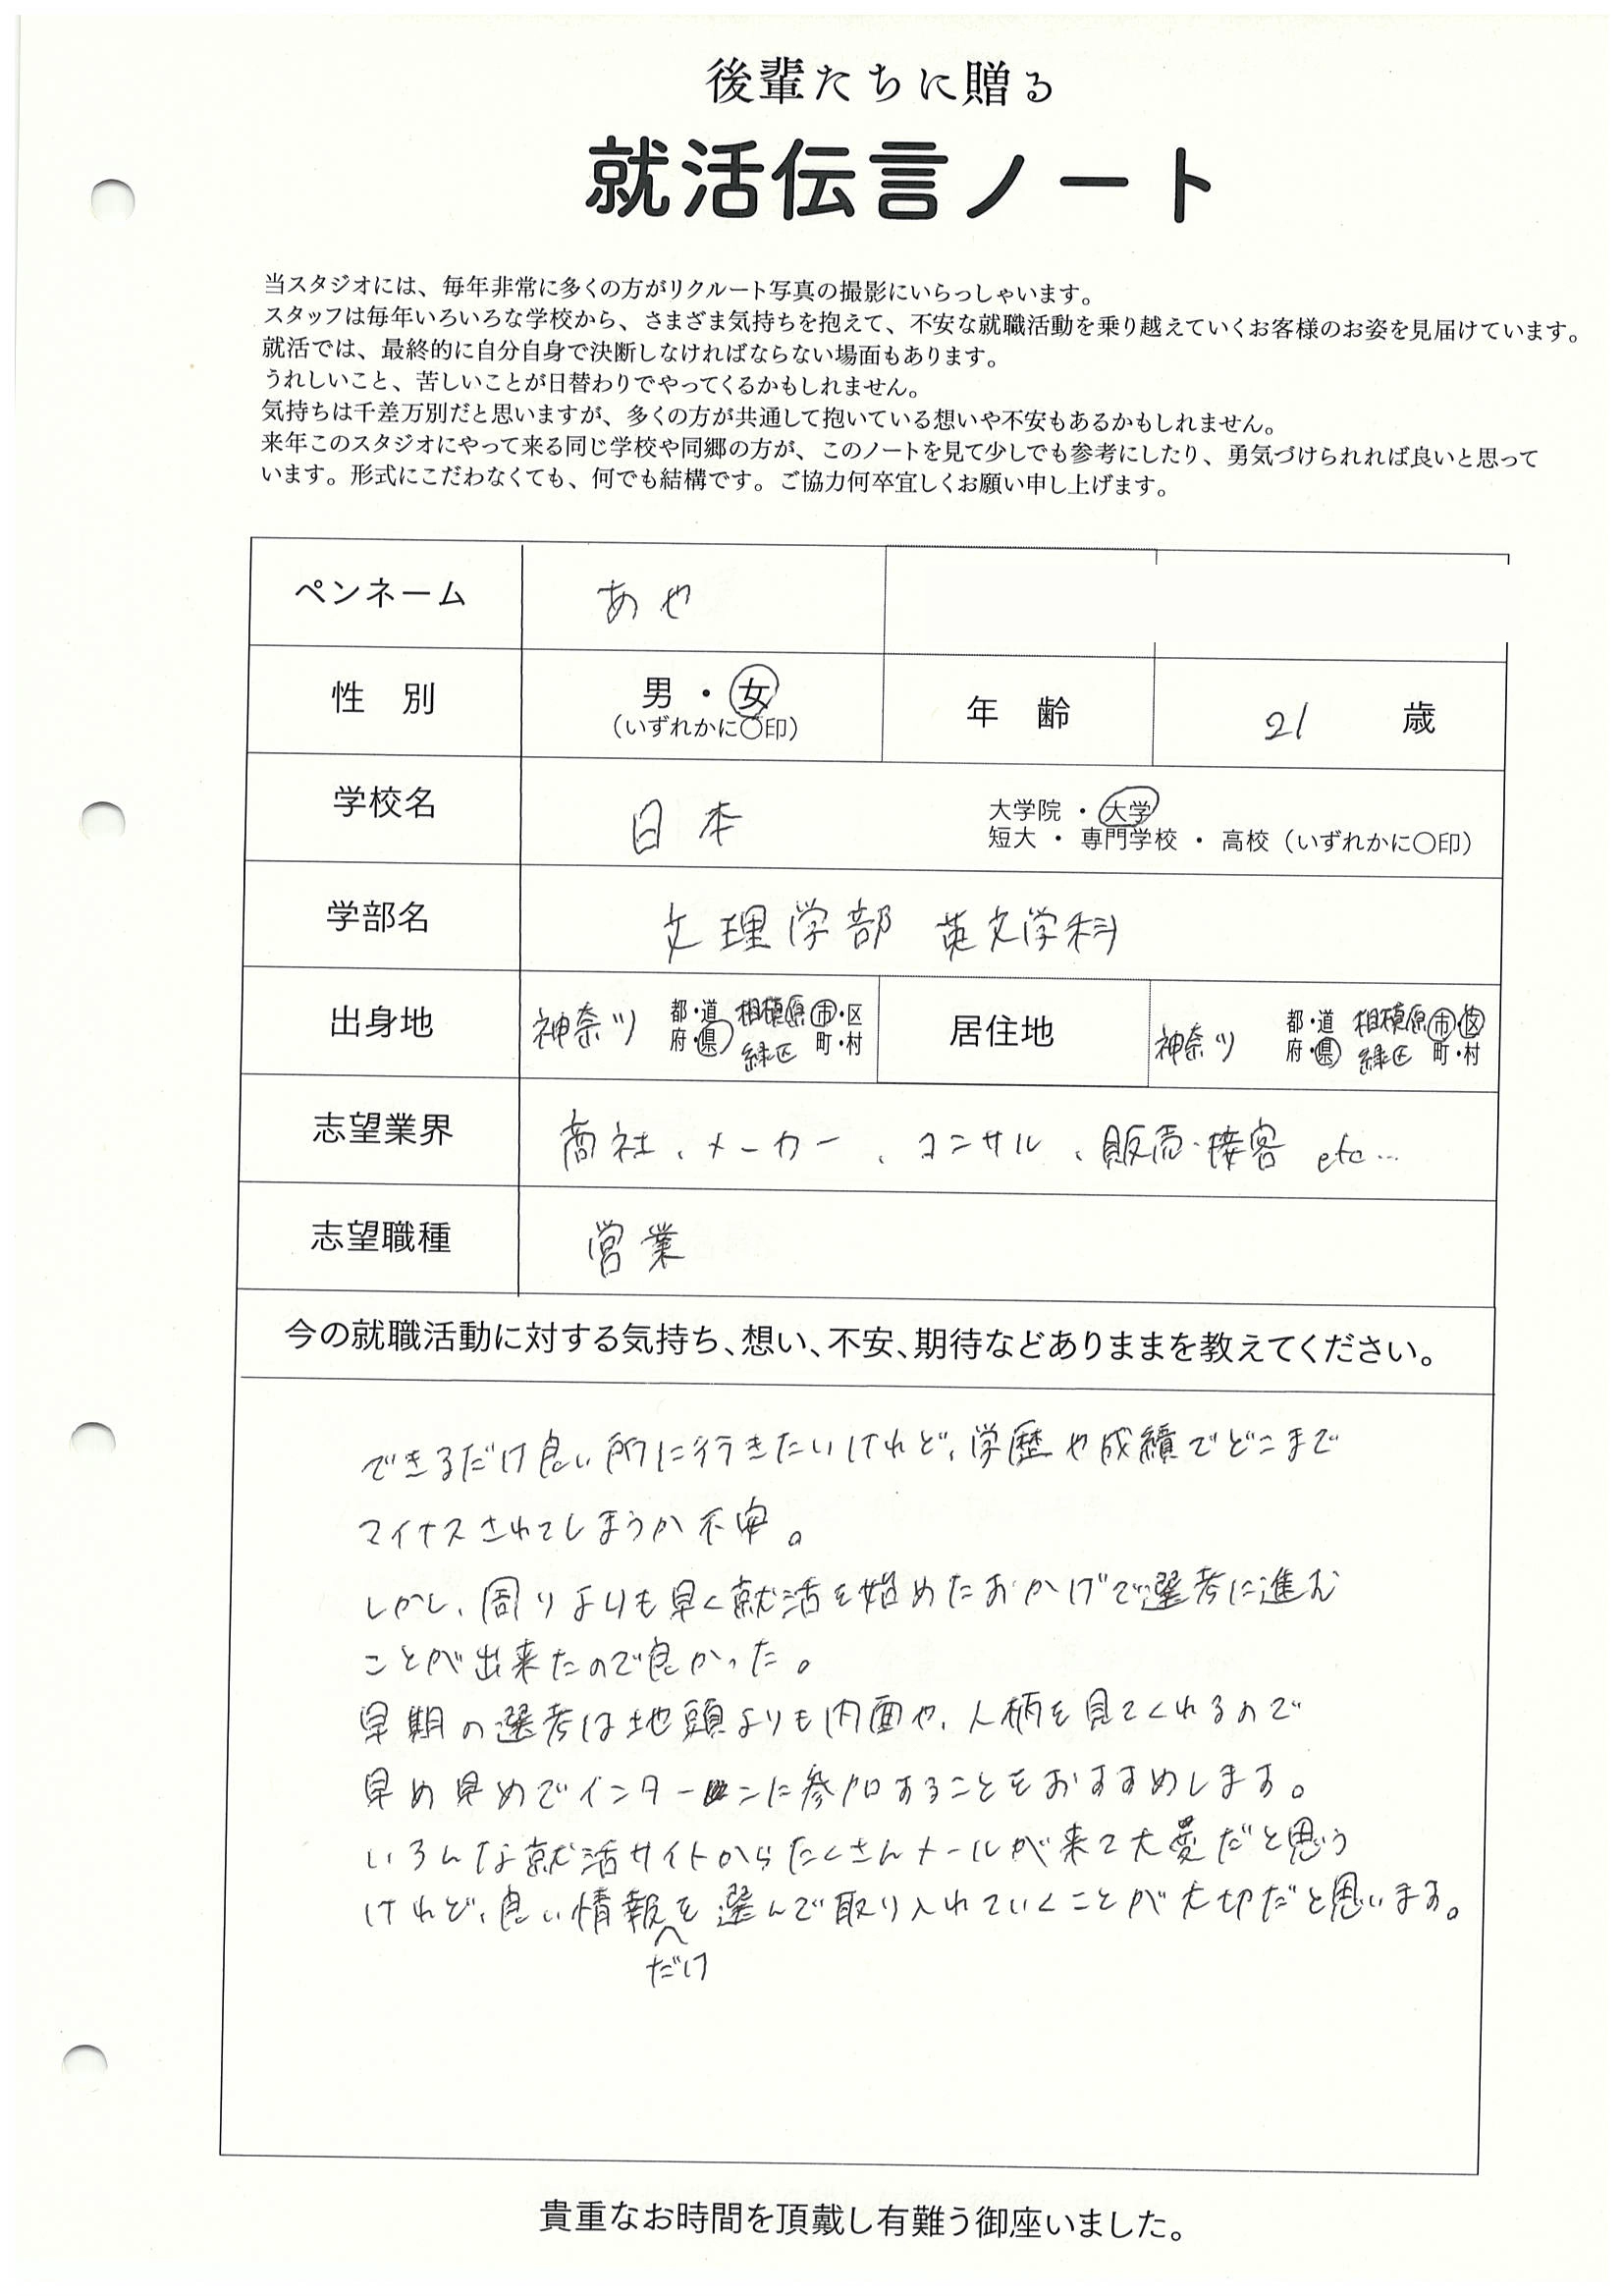 後輩たちに贈る
就活伝言ノート
当スタジオには、毎年非常に多くの方がリクルート写真の撮影にいらっしゃいます。
スタッフは毎年いろいろな学校から、さまざま気持ちを抱えて、不安な就職活動を乗り越えていくお客様のお姿を見届けています。
就活では、最終的に自分自身で決断しなければならない場面もあります。
うれしいこと、苦しいことが日替わりでやってくるかもしれません。
気持ちは千差万別だと思いますが、多くの方が共通して抱いている想いや不安もあるかもしれません。
来年このスタジオにやって来る同じ学校や同郷の方が、このノートを見て少しでも参考にしたり、勇気づけられれば良いと思って
います。形式にこだわなくても、何でも結構です。ご協力何卒宜しくお願い申し上げます。
ペンネーム あや
性 別 男 ・ 女 年 齢 21 歳
(いずれかに〇印)
学校名 日本 大学院 ・ 大学
短大 ・ 専門学校 ・ 高校 (いずれかに〇印)
学部名 文理学部 英文学科
出身地 神奈川 都・道 相模原 市・区 居住地 神奈川 都・道 相模原 市・区
府・県 緑区 町・村 府・県 緑区 町・村
志望業界 商社、メーカー、コンサル、販売・接客 etc…
志望職種 営業
今の就職活動に対する気持ち、想い、不安、期待などありままを教えてください。
できるだけ良い所に行きたいけれど、学歴や成績でどこまで
マイナスされてしまうか不安。
しかし、周りよりも早く就活を始めたおかげで選考に進む
ことが出来たので良かった。
早期の選考は地頭よりも内面や、人柄を見てくれるので
早め早めでインターンに参加することをおすすめします。
いろんな就活サイトからたくさんメールが来て大変だと思う
けれど、良い情報を選んで取り入れていくことが大切だと思います。
だけ
貴重なお時間を頂戴し有難う御座いました。